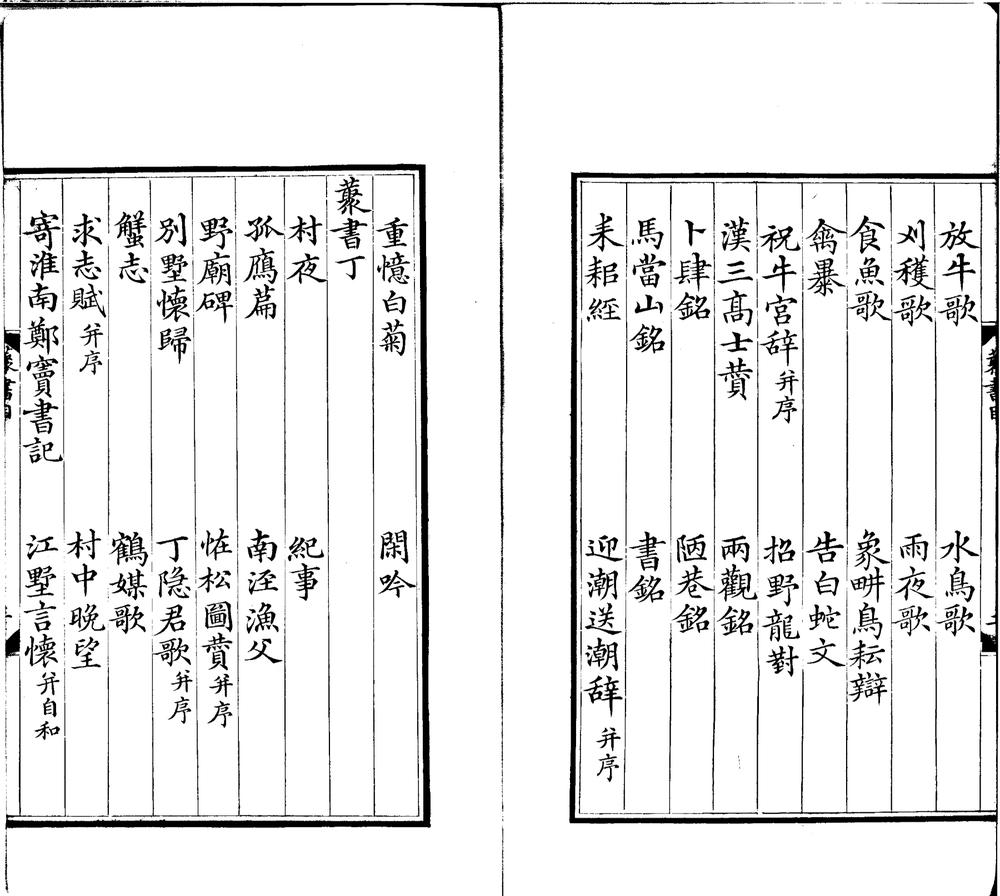 放牛歌 水鳥歌
刈穫歌 雨夜歌
食魚歌 象畊鳥耘辯
禽暴 告白蛇文
祝牛宮辞并序 招野龍對
漢三高士贊 兩觀銘
卜肆銘 陋巷銘
馬當山銘 書銘
耒耜經 迎潮送潮辞并序
重憶白菊 閑吟
叢書丁
村夜 紀事
孤鴈篇 南涇漁父
野廟碑 恠松圖贊并序
別墅懷歸 丁隐君歌并序
蟹志 鶴媒歌
求志賦并序 村中晚望
寄淮南鄭賓書記 江墅言懷并自和